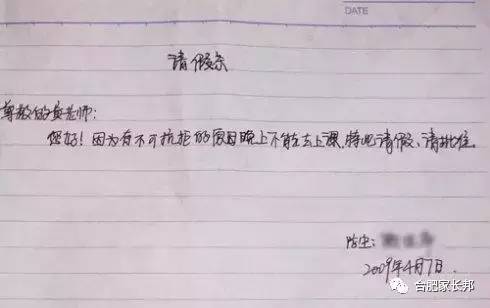 DATE
请假条
尊敬的黄老师:
您好!因为有不可抗拒的原因晚上不能去上课,特此请假、请批准
陪虫:
2009年4月7日.
合肥家长邦